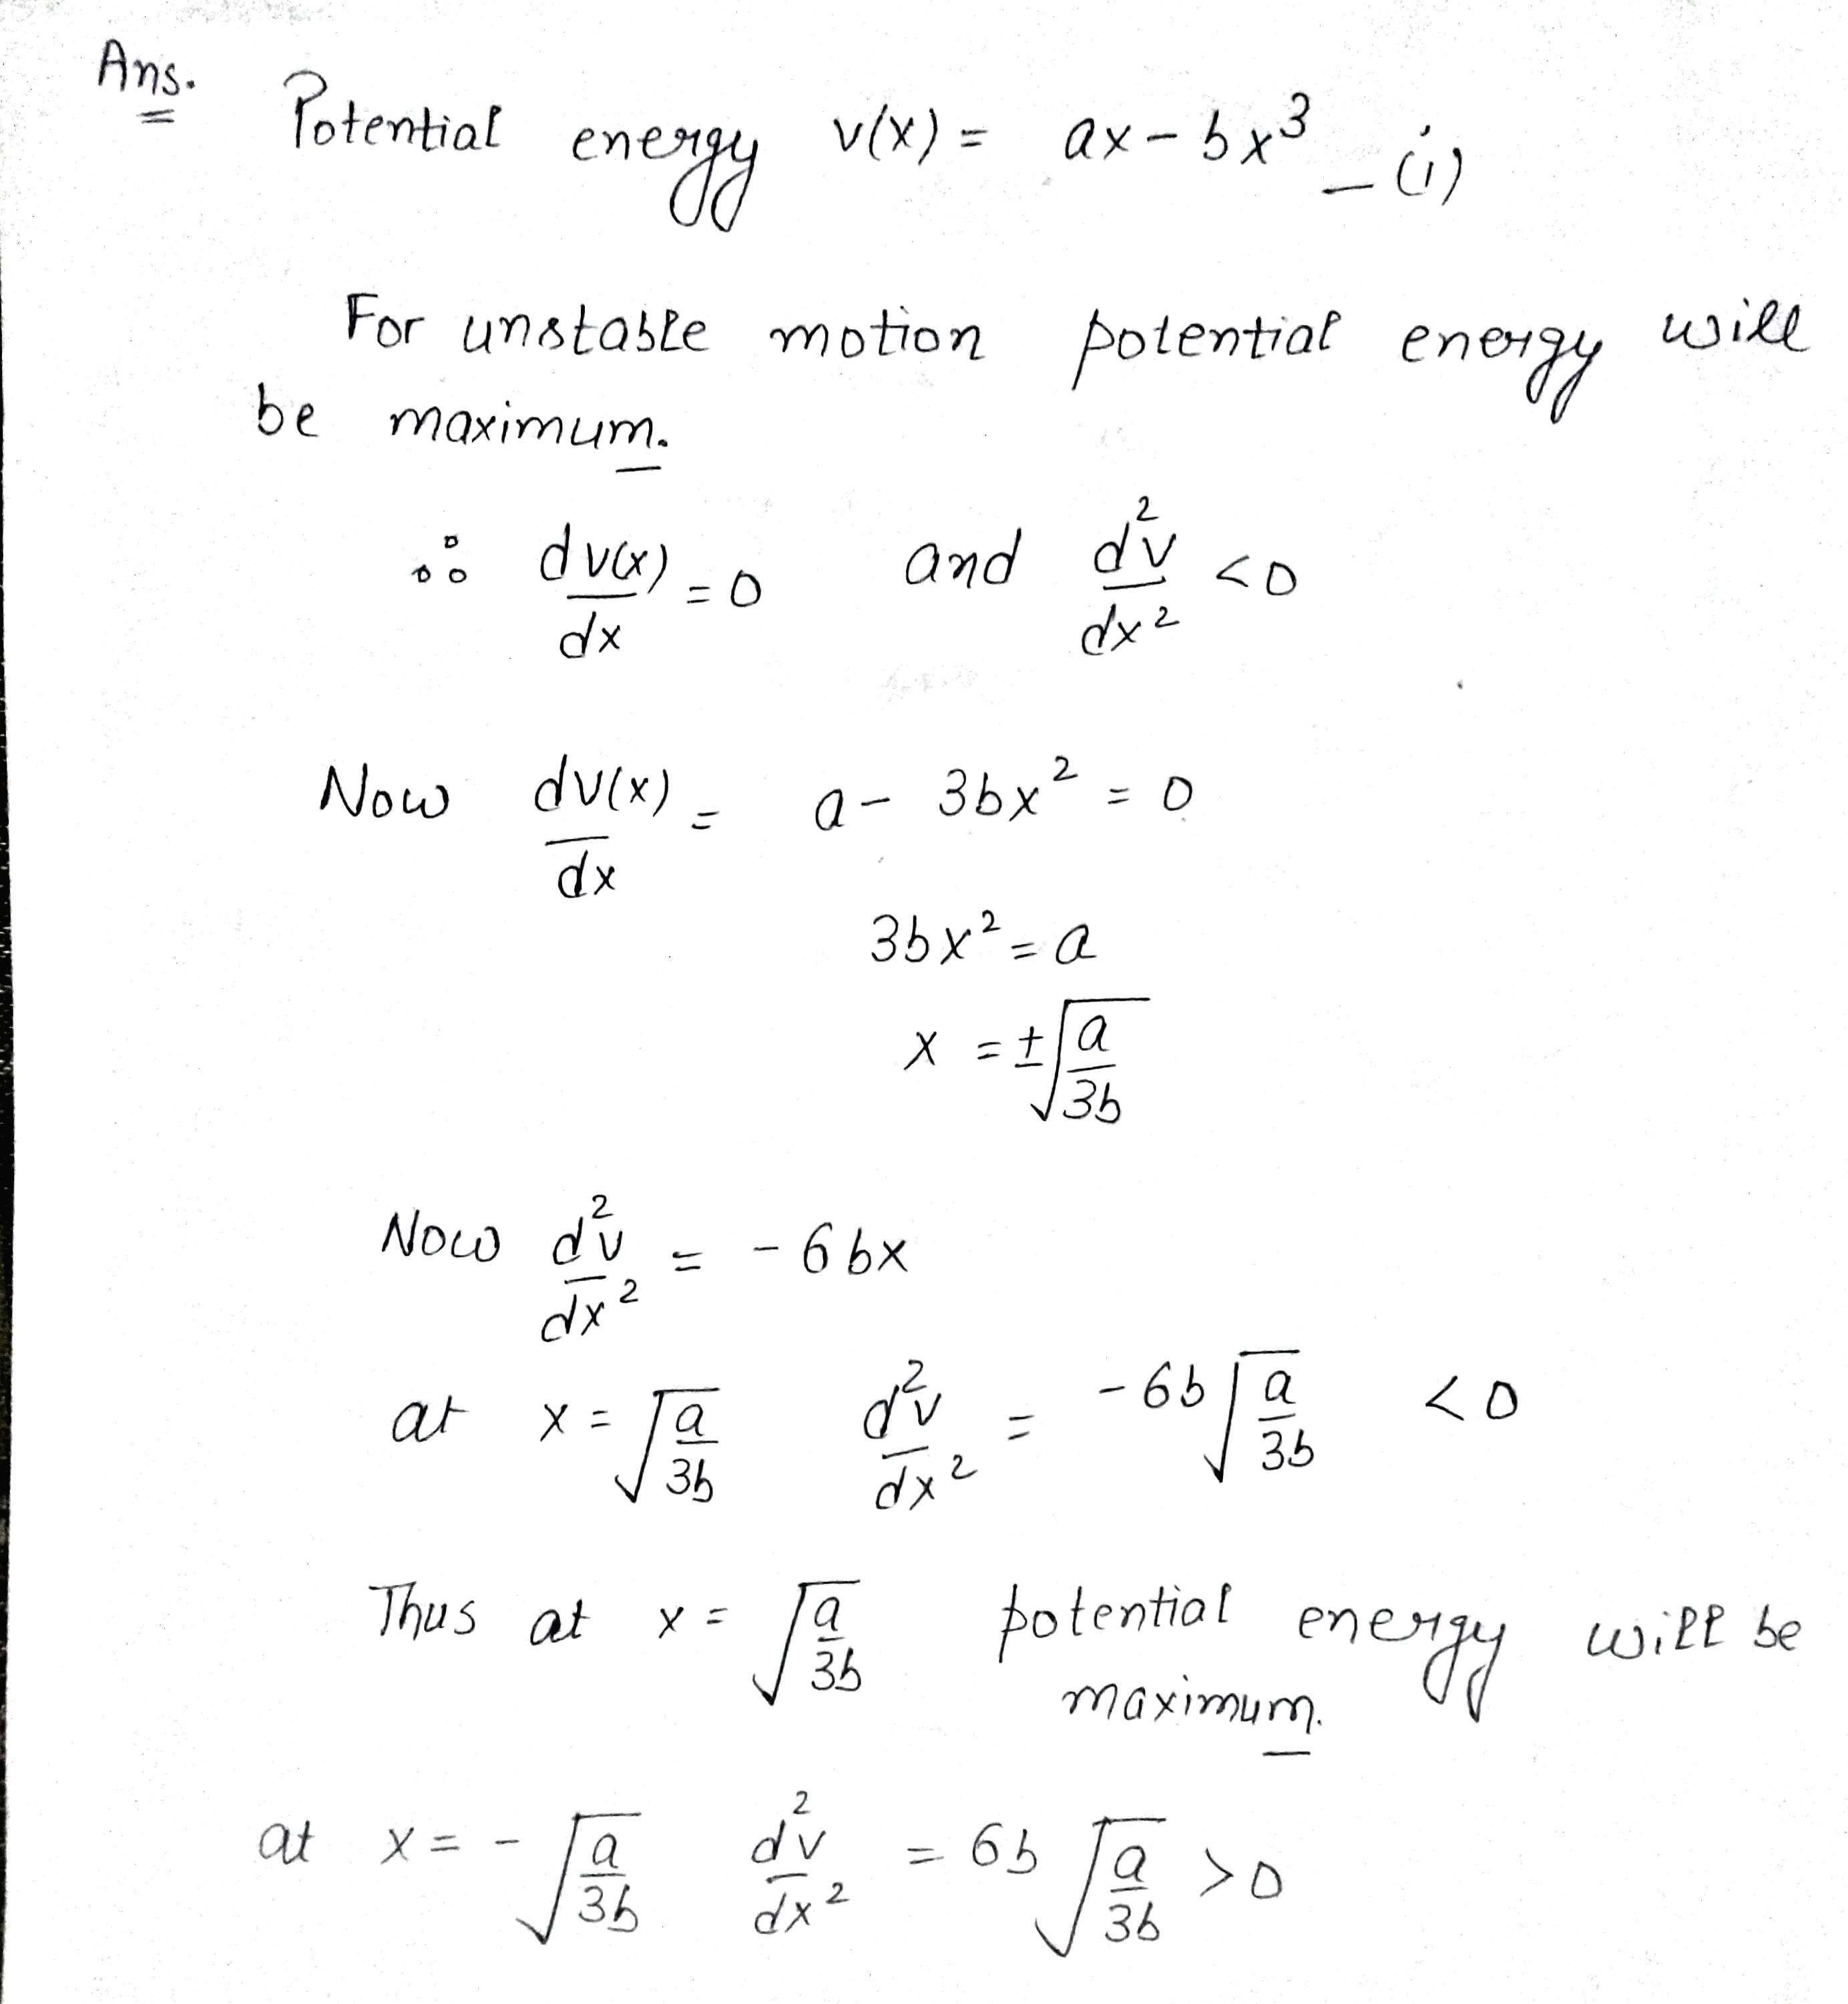 Ans. Potential energy v(x) = ax - bx³ — (i)
For unstable motion potential energy will
be maximum.
∴ dv(x)/dx = 0 and d²v/dx² < 0
Now dv(x)/dx = a - 3bx² = 0
3bx² = a
x = ±√(a/3b)
Now d²v/dx² = -6bx
at x = √(a/3b) d²v/dx² = -6b√(a/3b) < 0
Thus at x = √(a/3b) potential energy will be
maximum.
at x = -√(a/3b) d²v/dx² = 6b√(a/3b) > 0